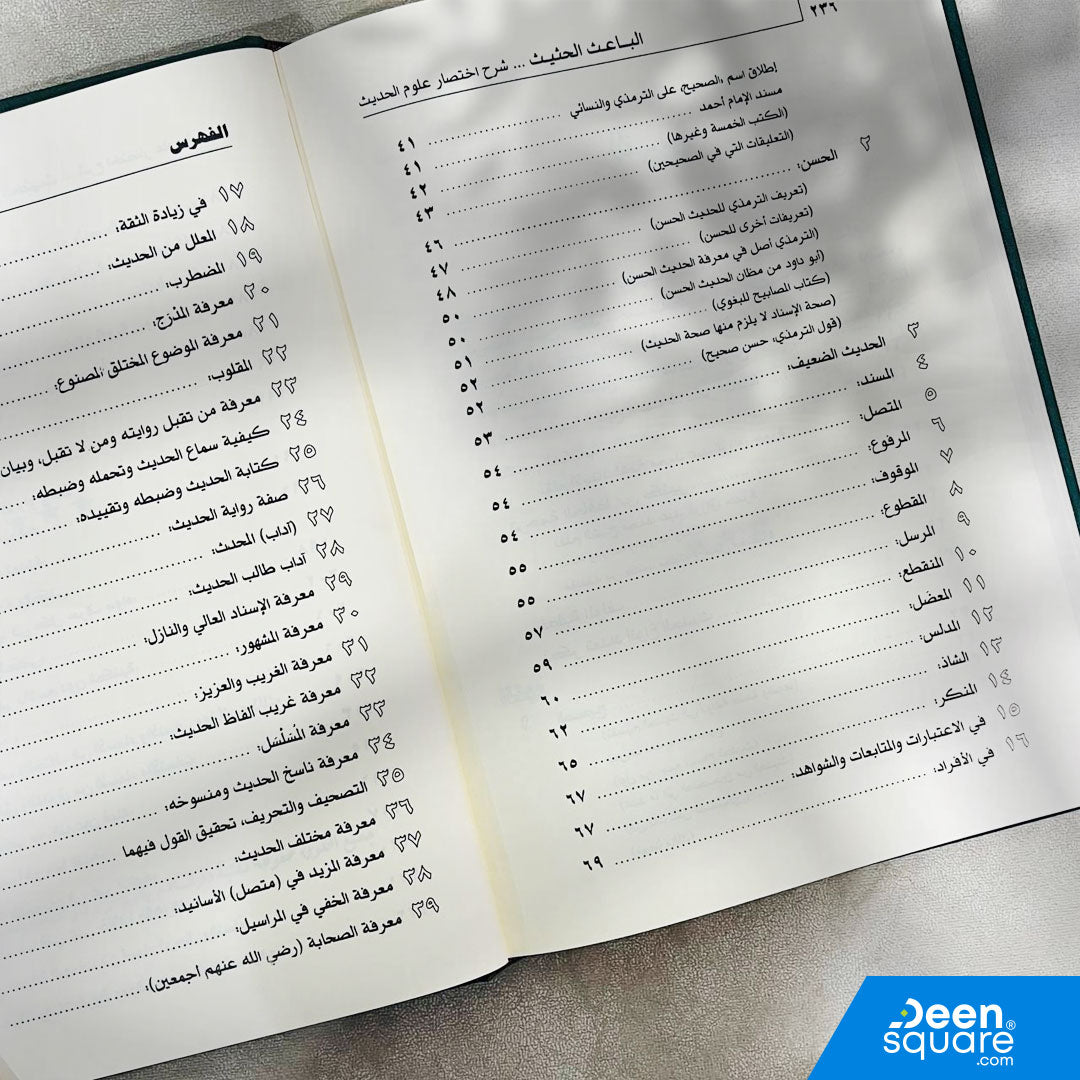 ٢٣٦
الباعث الحثيث ... شرح اختصار علوم الحديث
إطلاق اسم «الصحيح» على الترمذي والنسائي ٤١
مسند الإمام أحمد ٤١
(الكتب الخمسة وغيرها) ٤٢
(التعليقات التي في الصحيحين) ٤٣
٢ الحسن: ٤٦
(تعريف الترمذي للحديث الحسن) ٤٧
(تعريفات أخرى للحسن) ٤٨
(الترمذي أصل في معرفة الحديث الحسن) ٥٠
(أبو داود من مظان الحديث الحسن) ٥٠
(كتاب المصابيح للبغوي) ٥١
(صحة الإسناد لا يلزم منها صحة الحديث) ٥٢
(قول الترمذي، حسن صحيح) ٥٢
٣ الحديث الضعيف: ٥٣
٤ المسند: ٥٤
٥ المتصل: ٥٤
٦ المرفوع: ٥٤
٧ الموقوف: ٥٥
٨ المقطوع: ٥٥
٩ المرسل: ٥٧
١٠ المنقطع: ٥٩
١١ المعضل: ٦٠
١٢ المدلس: ٦٢
١٣ الشاذ: ٦٥
١٤ المنكر: ٦٧
١٥ في الاعتبارات والمتابعات والشواهد: ٦٧
١٦ في الأفراد: ٦٩
الفهرس
١٧ في زيادة الثقة:
١٨ المعلل من الحديث:
١٩ المضطرب:
٢٠ معرفة المُدْرَج:
٢١ معرفة الموضوع المختلق المصنوع:
٢٢ المقلوب:
٢٣ معرفة من تقبل روايته ومن لا تقبل، وبيان
٢٤ كيفية سماع الحديث وتحمله وضبطه:
٢٥ كتابة الحديث وضبطه وتقييده:
٢٦ صفة رواية الحديث:
٢٧ (آداب) المحدث:
٢٨ آداب طالب الحديث:
٢٩ معرفة الإسناد العالي والنازل:
٣٠ معرفة المشهور:
٣١ معرفة الغريب والعزيز:
٣٢ معرفة غريب ألفاظ الحديث:
٣٣ معرفة المُسَلْسَل:
٣٤ معرفة ناسخ الحديث ومنسوخه:
٣٥ التصحيف والتحريف، تحقيق القول فيهما
٣٦ معرفة مختلف الحديث:
٣٧ معرفة المزيد في (متصل) الأسانيد:
٣٨ معرفة الخفي في المراسيل:
٣٩ معرفة الصحابة (رضي الله عنهم أجمعين):
Deen
square®
.com